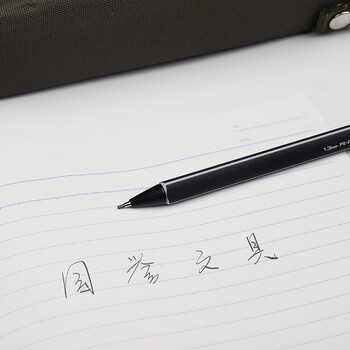 1.3mm PS-P
国誉文具